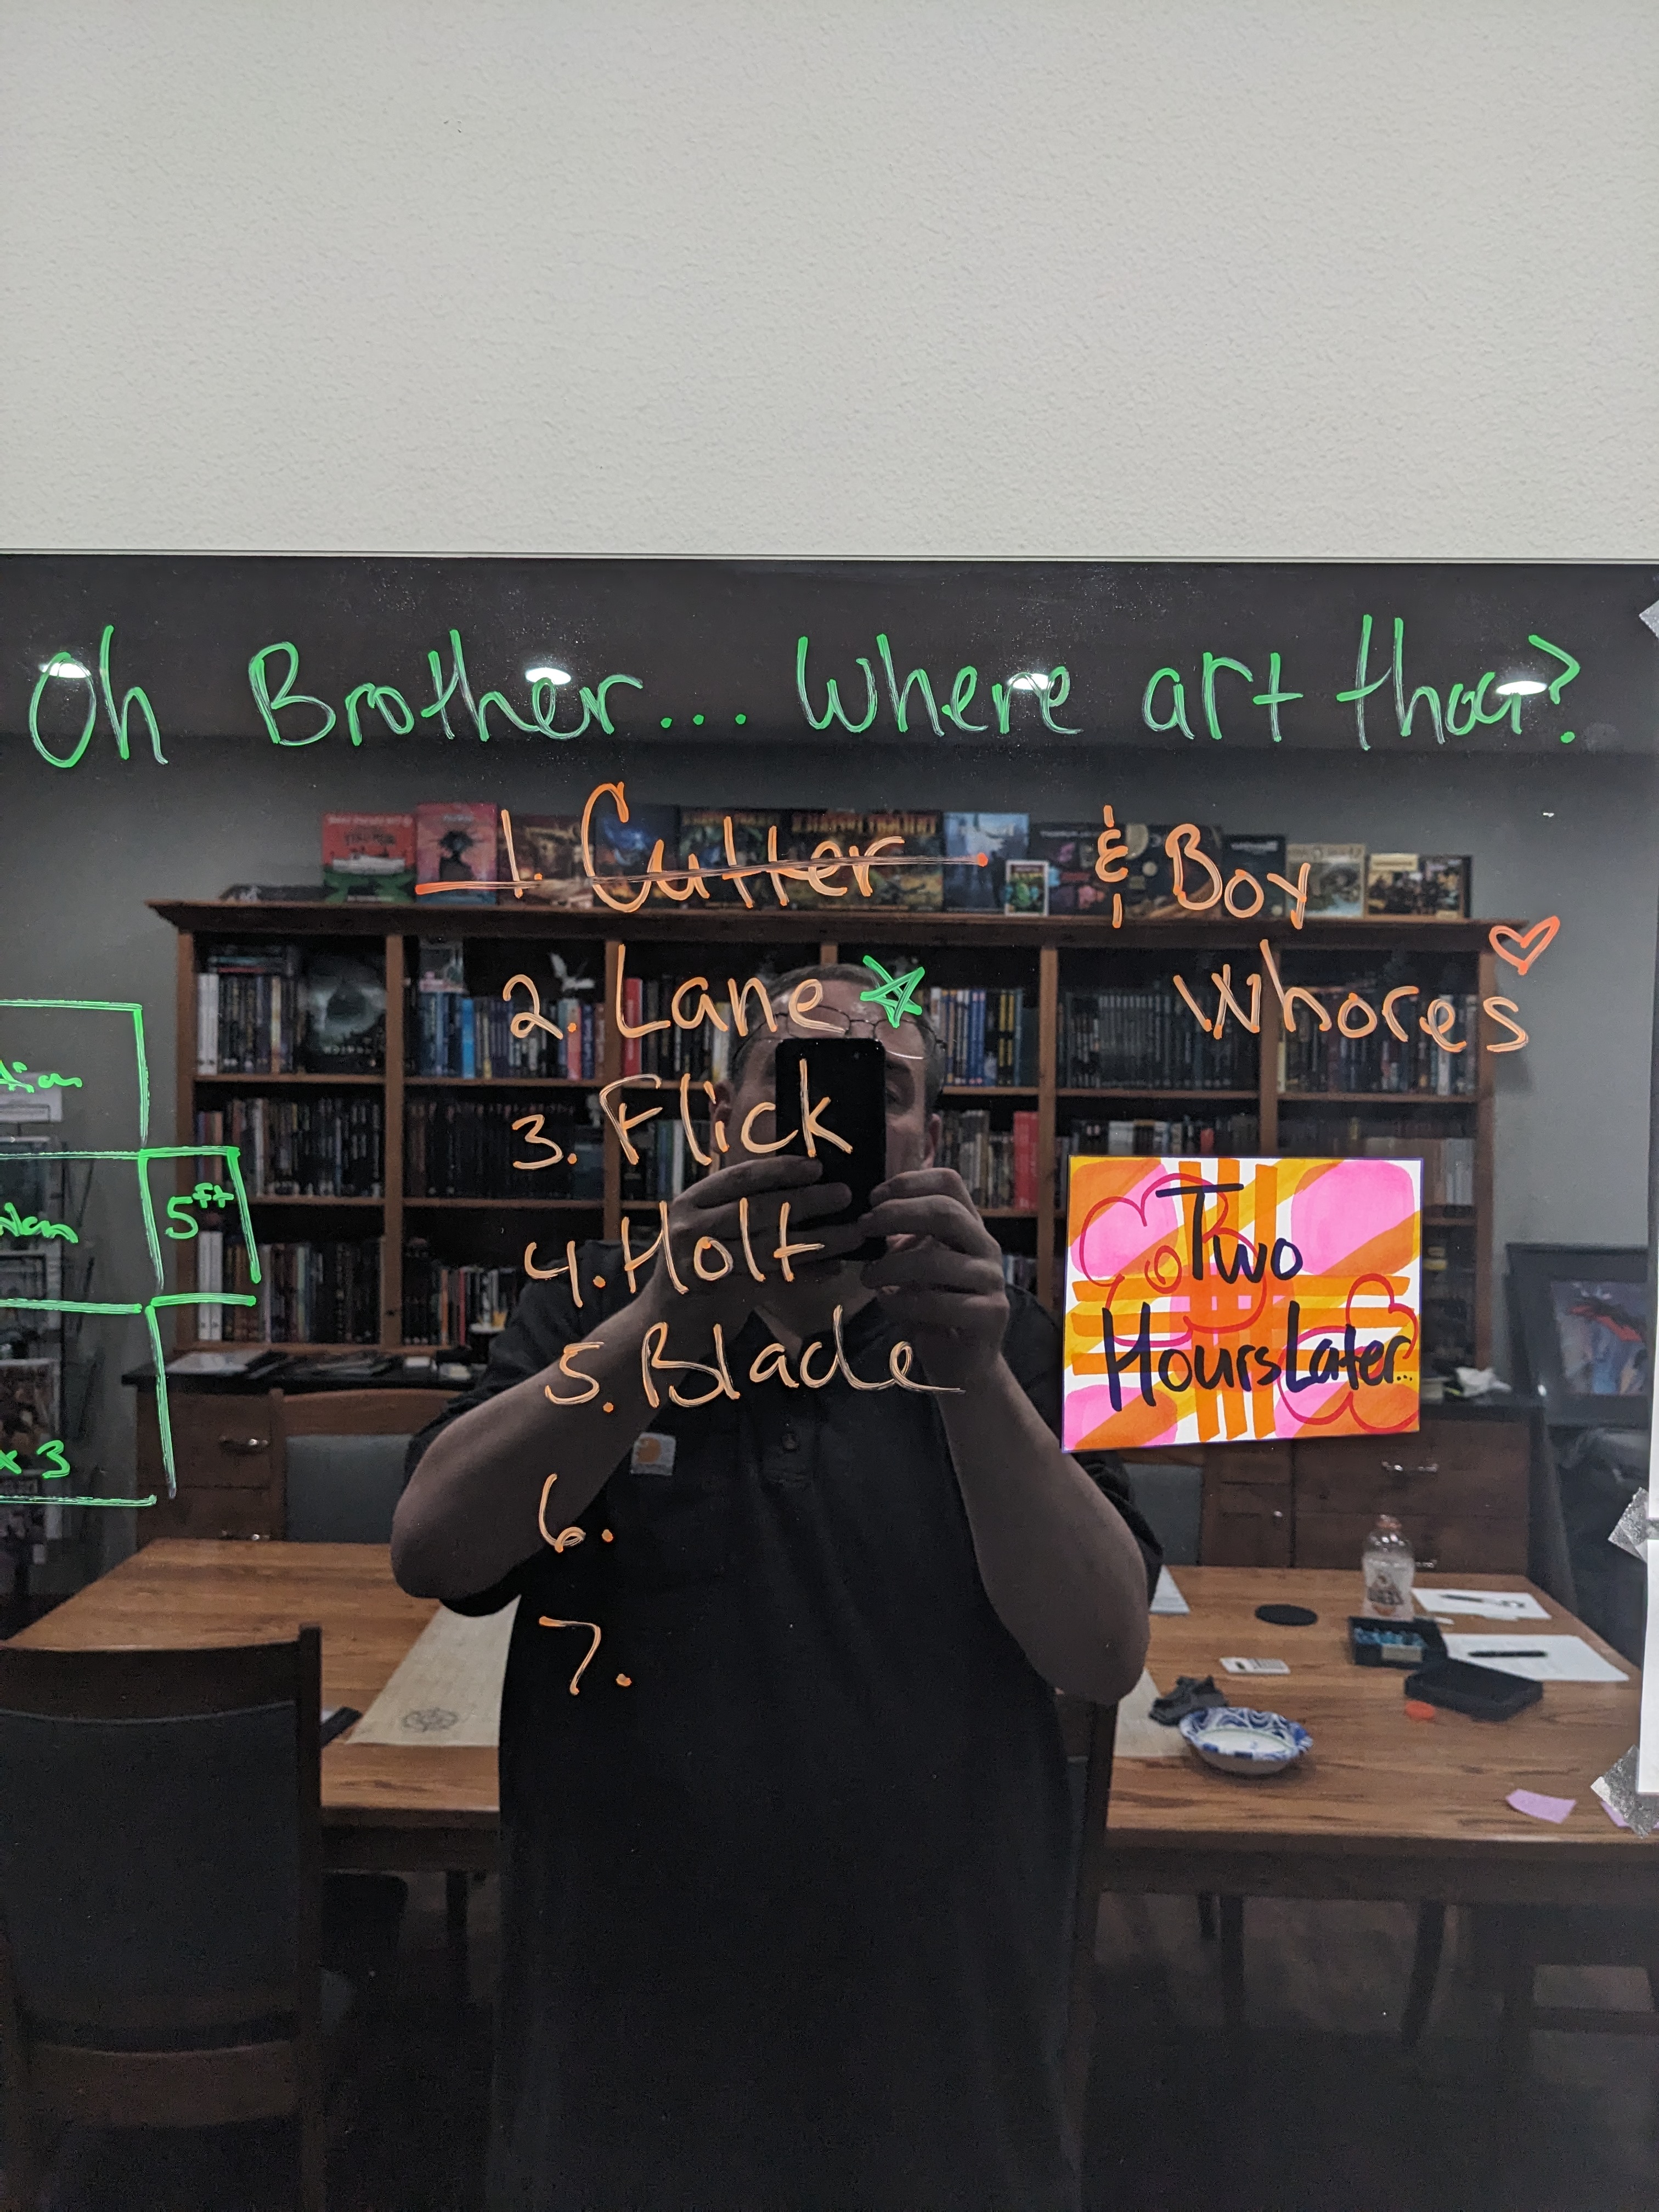 Oh Brother... Where art thou?
1. Cutter
& Boy
Whores
2. Lane
3. Flick
4. Holt
5. Blade
6.
7.
5ft
x 3
Two
Hours Later...